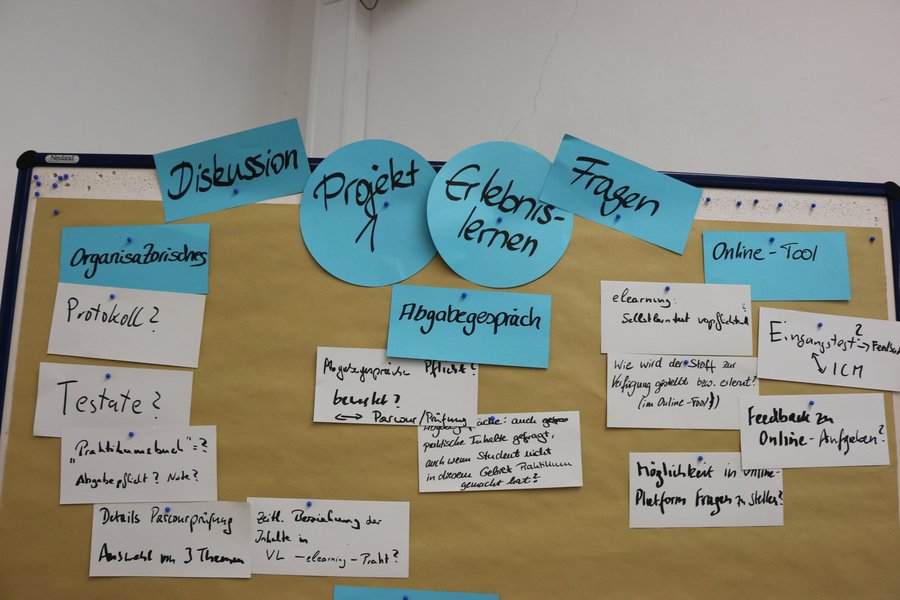 Neuland
Diskussion
Projekt
1
Erlebnis-
lernen
Fragen
Organisatorisches
Protokoll?
Testate?
"Praktikumsbuch" = ?
Abgabepflicht? Note?
Details Parcourprüfung
Auswahl von 3 Themen
Zeitl. Beziehung der
Inhalte in
VL - elearning - Prakt?
Abgabegespräch
Abgabegespräche Pflicht?
bewertet?
<-> Parcour/Prüfung
auch
praktische Inhalte gefragt,
auch wenn Student nicht
in diesem Gebiet Praktikum
gemacht hat?
Online-Tool
elearning:
Selbstlerntest verpflichtend
?
Wie wird der Stoff zur
Verfügung gestellt bzw. erlernt?
(im Online-Tool)
Eingangstest? -> Feedback
ICM
Feedback zu
Online-Aufgaben?
Möglichkeit in Online-
Plattform Fragen zu stellen?